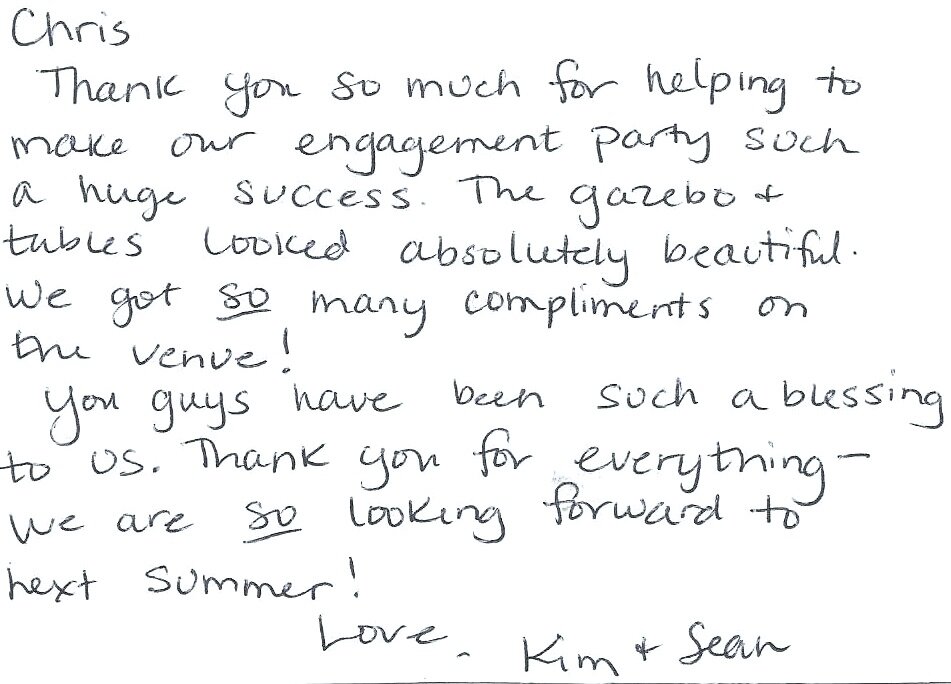 Chris
Thank you so much for helping to
make our engagement party such
a huge success. The gazebo &
tables looked absolutely beautiful.
We got so many compliments on
the venue!
You guys have been such a blessing
to us. Thank you for everything—
we are so looking forward to
next summer!
Love, Kim & Sean